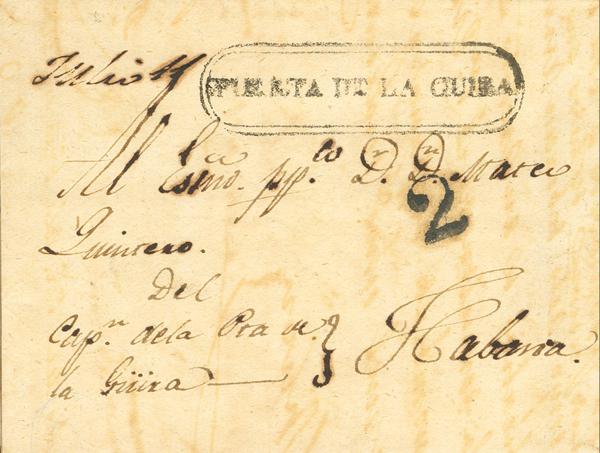 Julio 14
PUERTA DE LA GUIRA
Al Esmo. ppto. Dn. Dn. Mateo
2
Quintero.
Del
Capn. dela Pra de
la Güira
Habana.